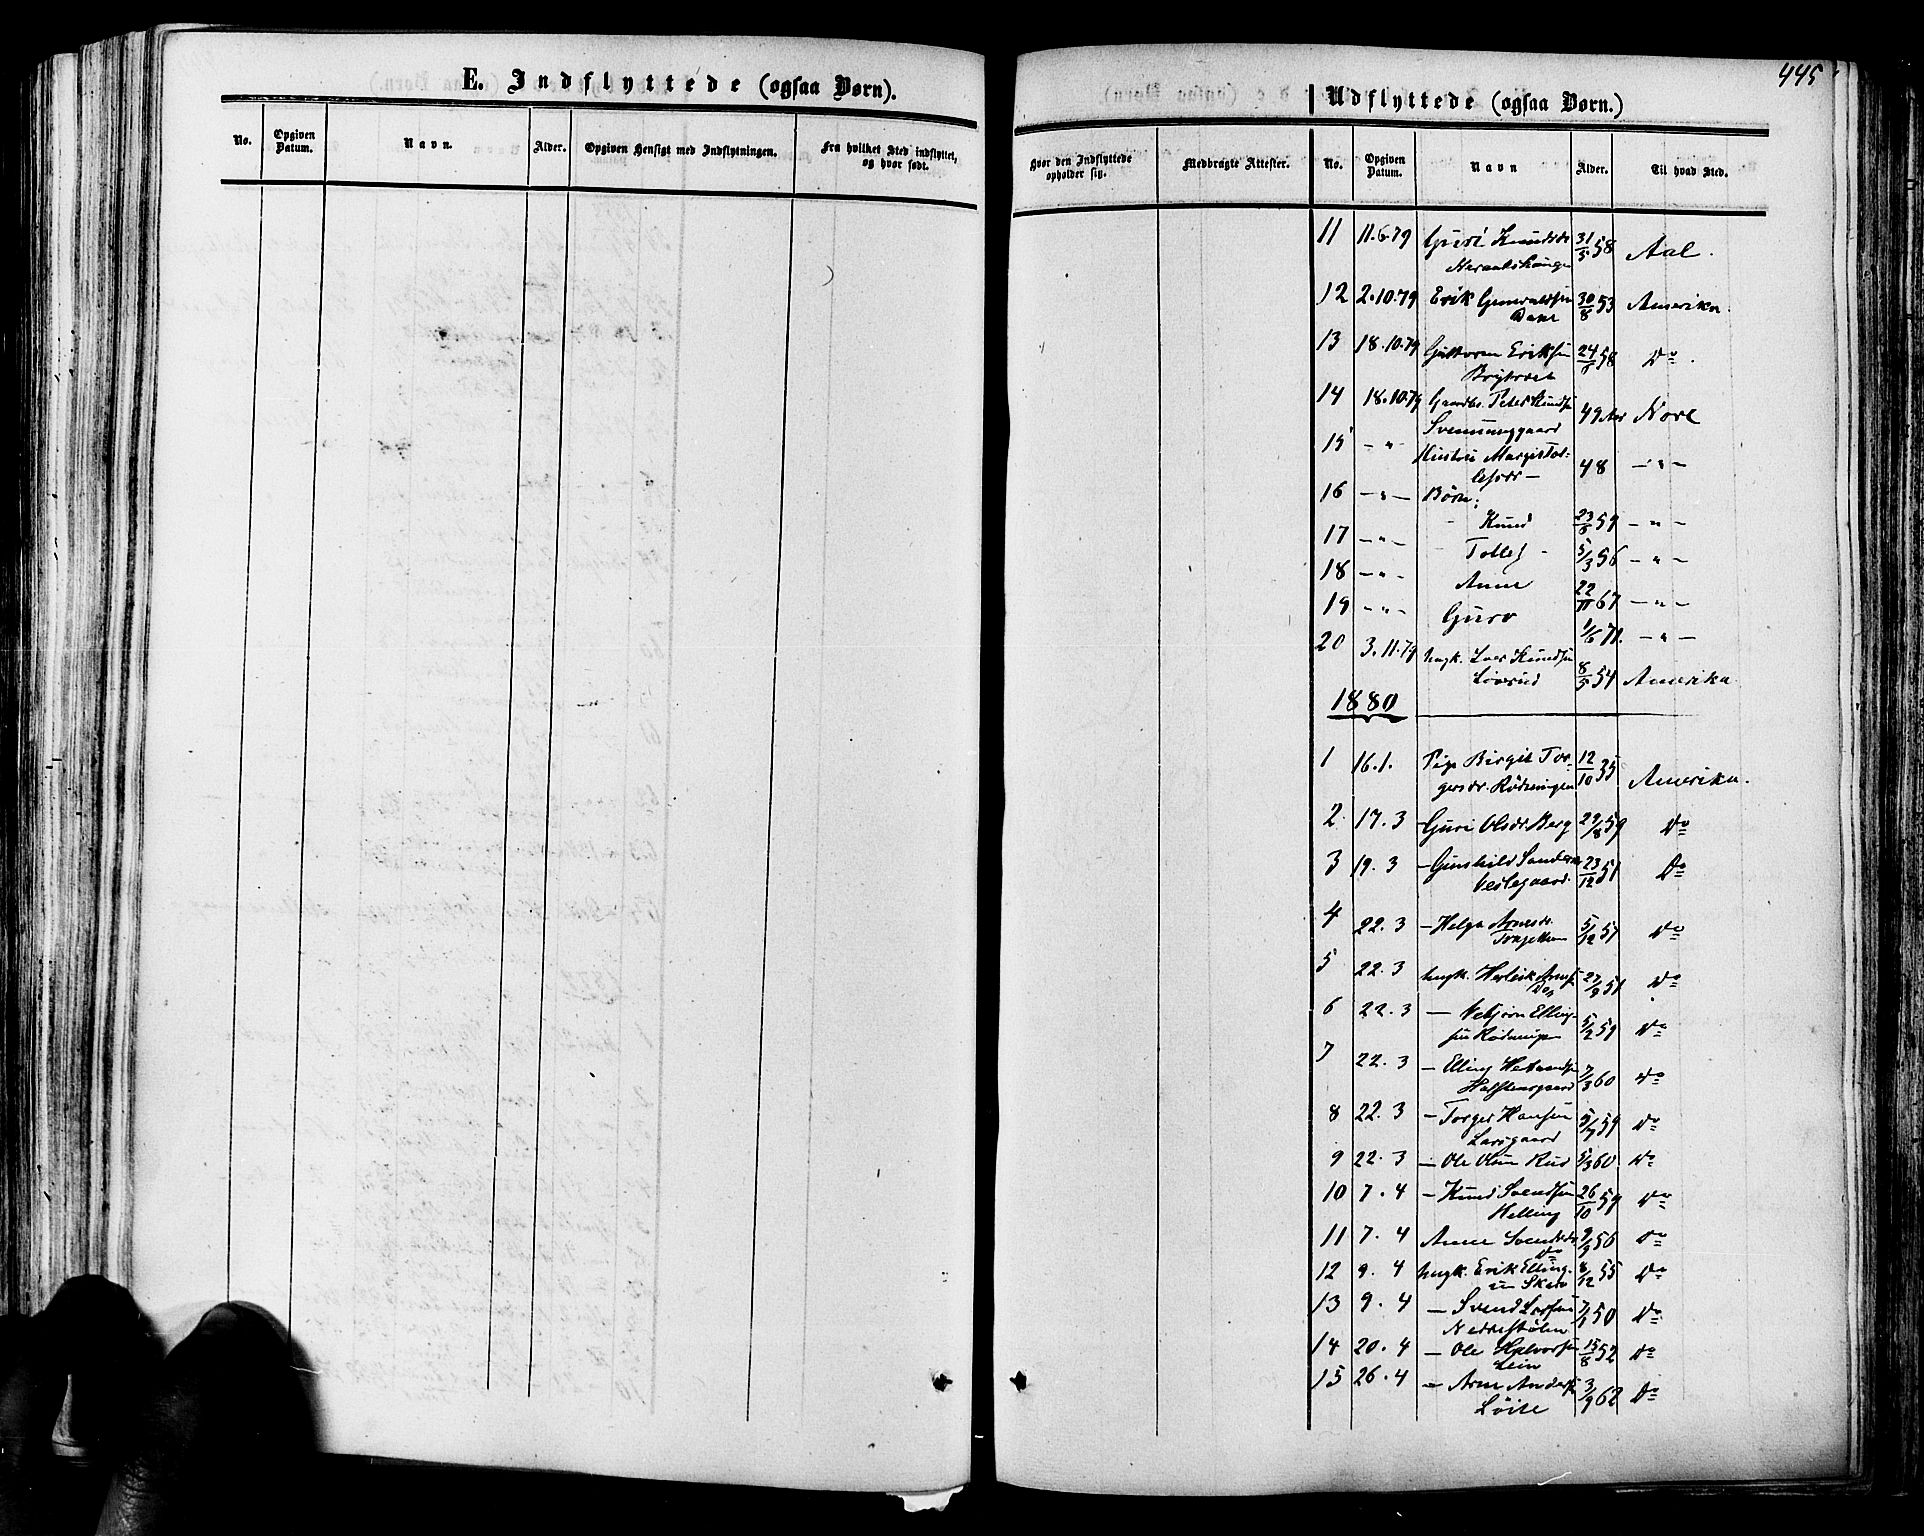 445
E. Indflyttede (ogsaa Børn).
No. Opgiven Datum. Navn. Alder. Opgiven Hensigt med Indflytningen. Fra hvilket Sted indflyttet, og hvor født.
Udflyttede (ogsaa Børn.)
Hvor den Indflyttede opholder sig. Medbragte Attester. No. Opgiven Datum. Navn Alder. Til hvad Sted.
11 11.6.79 Guri Knudsdr 31/5 58 Aal.
12 2.10.79 Erik Gunvaldsen 30/8 53 Amerika.
13 18.10.79 Guttorm Eriksen 24/ 58 Do.
14 18.10.79 Gaardbr. Peter Knudsen 49 Aar Nore
Svenninggaard
15 — " Hustru Margit Tol-
lefsdr — 48 — " —
16 — " — Børn:
Knud 23/5 59 — " —
17 — " — Tollef 5/3 56 — " —
18 — " — Anne 22/11 67 — " —
19 — " — Guro 1/6 71. — " —
20 3.11.79 Ungk. Iver Knudsen
8/5 54 Amerika
1880
1 16.1. Pige Birgit Tor- 12/10 35
gersdr. Rødningen Amerika.
2 17.3 — Guri Olsdr Berg 29/8 59 Do
3 19.3 — Gunhild 23/12 51 Do
Vestegaard.
4 22.3 — Helga Arnesdr. 5/12 57 Do
5 22.3 Ungk. Herleik Arnes. 27/9 51 Do
Do
6 22.3 — Nebjørn Elling-
sen Rødningen 5/2 59 Do
7 22.3 — Elling 7/3 60 Do
Halstensgaard
8 22.3 — Torger Hansen 5/7 59 Do
Larsgaard
9 22.3 — Ole Olsen Rud 5/3 60 Do
10 7.4 — Knud Svendsen 26/10 59 Do
Helling
11 7.4 Anne Svendsdr 9/9 56 Do
Do
12 9.4 Ungk. Erik Elling- 8/12 55 Do
sen
13 9.4 — Svend Larsen 7/1 50 Do
Nedrestølen
14 20.4 — Ole Halvorsen 15/8 52 Do
Lein
15 26.4 — Arne Anders. 3/9 62 Do